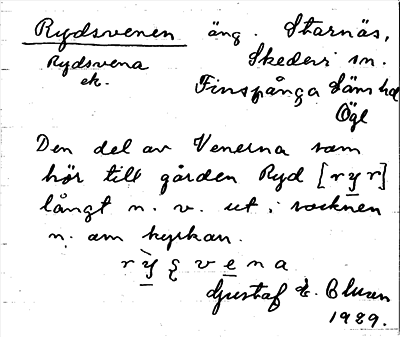 Rydsvenen äng. Starnäs,
Rydsvena Skedevi sn.
ek. Finspånga Läns hd
Ögl
Den del av Venerna som
hör till gården Ryd [ryr]
långt n. v. ut i socknen
n. om kyrkan.
rỳʂvena
Gustaf E. Bluren
1929.